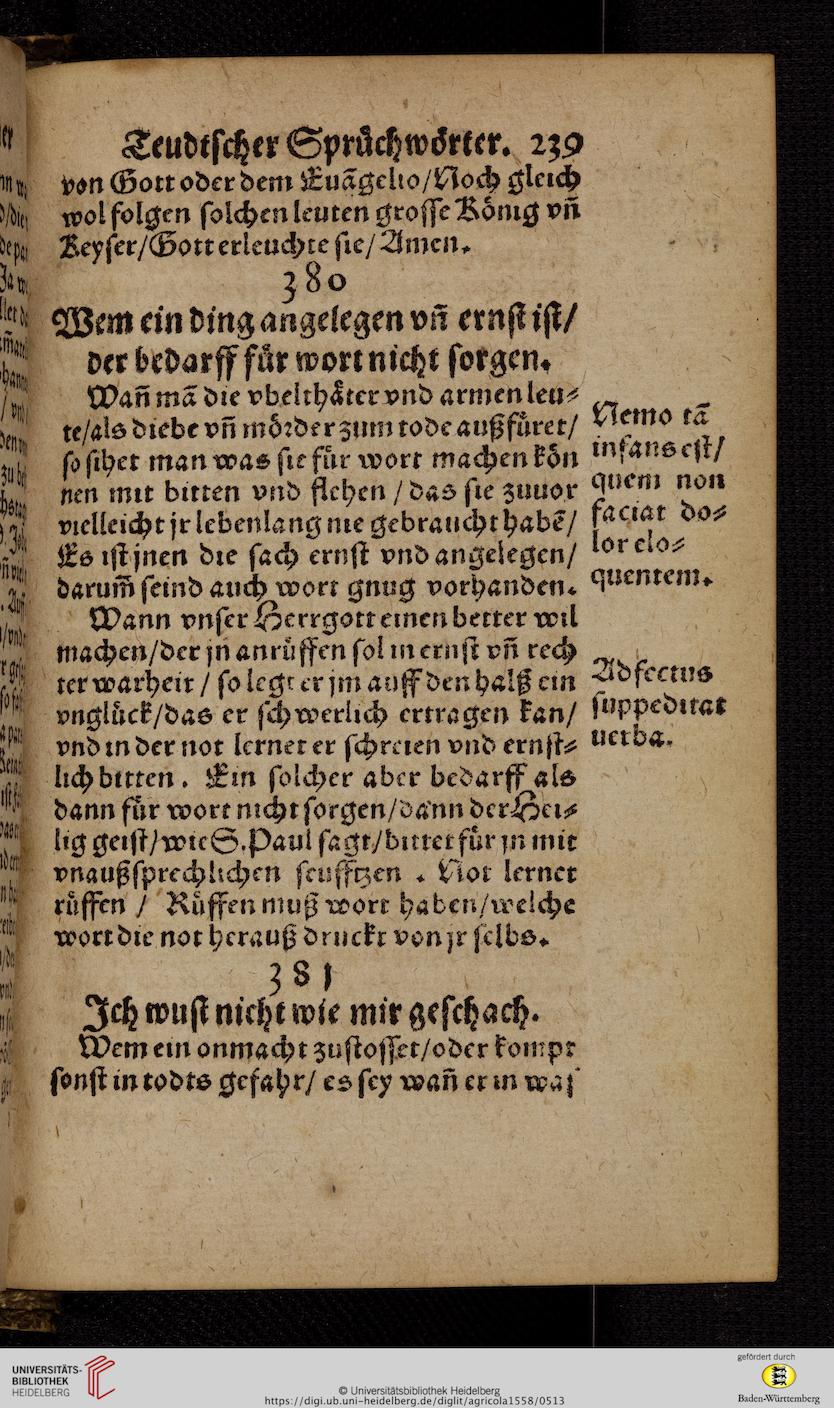 Teudtſcher Spruͤchwoͤrter. 239
von Gott oder dem Euãgelio/Noch gleich
wol folgen ſolchen leuten groſſe Koͤnig vñ
Keyſer/Gott erleuchte ſie/Amen.
380
Wem ein ding angelegen vñ ernſt iſt/
der bedarff fuͤr wort nicht ſorgen.
Wañ mã die vbelthaͤter vnd armen leu⸗
te/als diebe vñ moͤꝛder zum tode außfuͤret/
ſo ſihet man was ſie fuͤr wort machen koͤn
nen mit bitten vnd flehen / das ſie zuuor
vielleicht jr lebenlang nie gebraucht habẽ/
Es iſt jnen die ſach ernſt vnd angelegen/
darum̃ ſeind auch wort gnug vorhanden.
Nemo tã
infans eſt/
quem non
faciat do⸗
lor elo⸗
quentem.
Wann vnſer Herrgott einen better wil
machen/der jn anruͤffen ſol in ernſt vñ rech
ter warheit / ſo legt er jm auff den halß ein
vngluͤck/das er ſchwerlich ertragen kan/
vnd in der not lernet er ſchreien vnd ernſt⸗
lich bitten. Ein ſolcher aber bedarff als
dann fuͤr wort nicht ſorgen/dann der Hei⸗
lig geiſt/wie S. Paul ſagt/bittet fuͤr jn mit
vnaußſprechlichen ſeufftzen. Not lernet
ruͤffen / Ruͤffen muß wort haben/welche
wort die not herauß druckt von jr ſelbs.
Adfectus
ſuppeditat
uerba.
381
Ich wuſt nicht wie mir geſchach.
Wem ein onmacht zuſtoſſet/oder kompt
ſonſt in todts gefahr/ es ſey wañ er in waſ
UNIVERSITÄTS-
BIBLIOTHEK
HEIDELBERG
© Universitätsbibliothek Heidelberg
https://digi.ub.uni-heidelberg.de/diglit/agricola1558/0513
gefördert durch
Baden-Württemberg